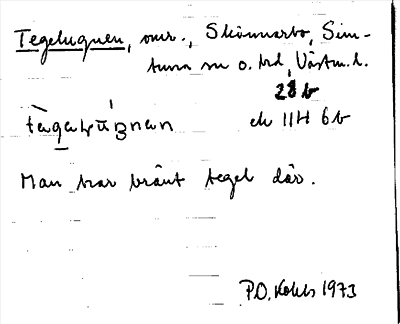 Tegelugnen, omr., Skönnarbo, Sim-
tuna sn o. hd, Västm. l.
28b
ek 11H 6b
Man har bränt tegel där.
P.O. 1973